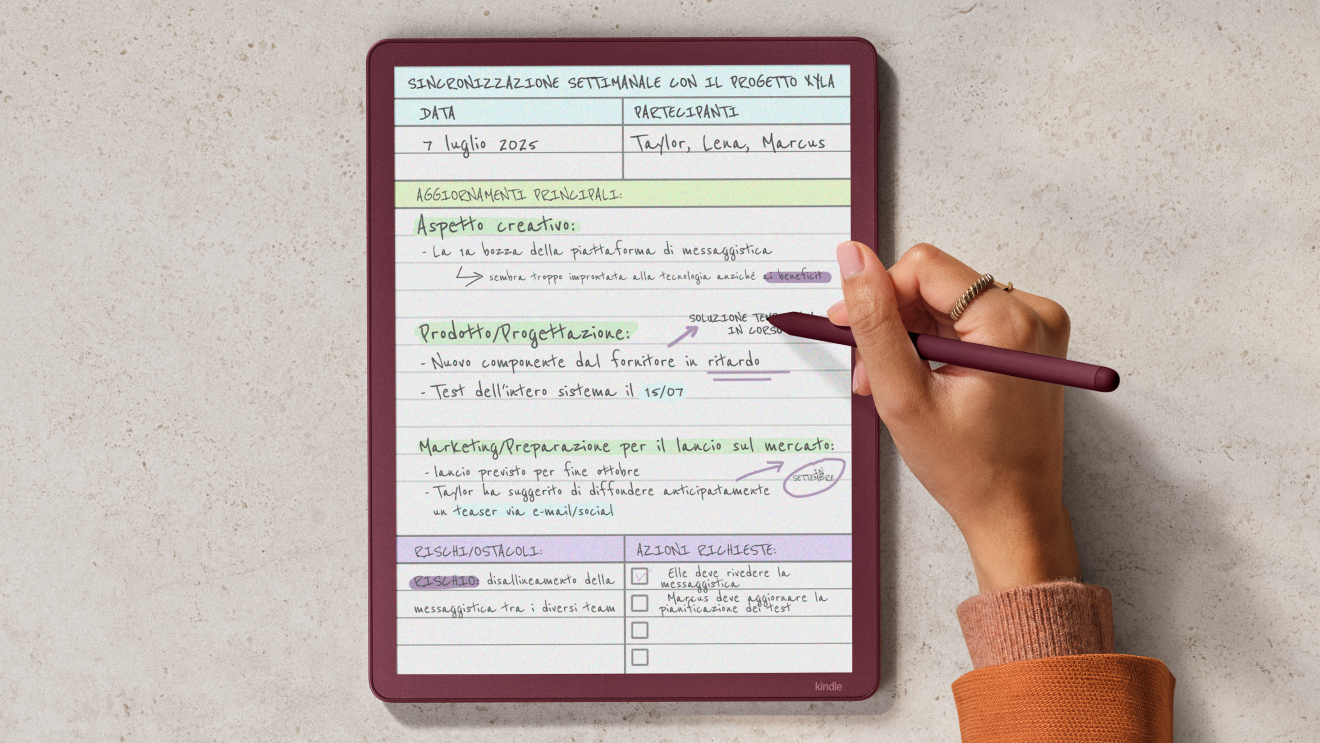 SINCRONIZZAZIONE SETTIMANALE CON IL PROGETTO XYLA
DATA
PARTECIPANTI
7 luglio 2025
Taylor, Lena, Marcus
AGGIORNAMENTI PRINCIPALI:
Aspetto creativo:
- La 1a bozza della piattaforma di messaggistica
sembra troppo improntata alla tecnologia anziché ai benefici
SOLUZIONE
IN CORSO
Prodotto/Progettazione:
- Nuovo componente dal fornitore in ritardo
- Test dell'intero sistema il 15/07
Marketing/Preparazione per il lancio sul mercato:
- lancio previsto per fine ottobre
IN
SETTEMBRE
- Taylor ha suggerito di diffondere anticipatamente
un teaser via e-mail/social
RISCHI/OSTACOLI:
RISCHIO: disallineamento della
messaggistica tra i diversi team
AZIONI RICHIESTE:
Elle deve rivedere la
messaggistica
Marcus deve aggiornare la
pianificazione dei test
kindle